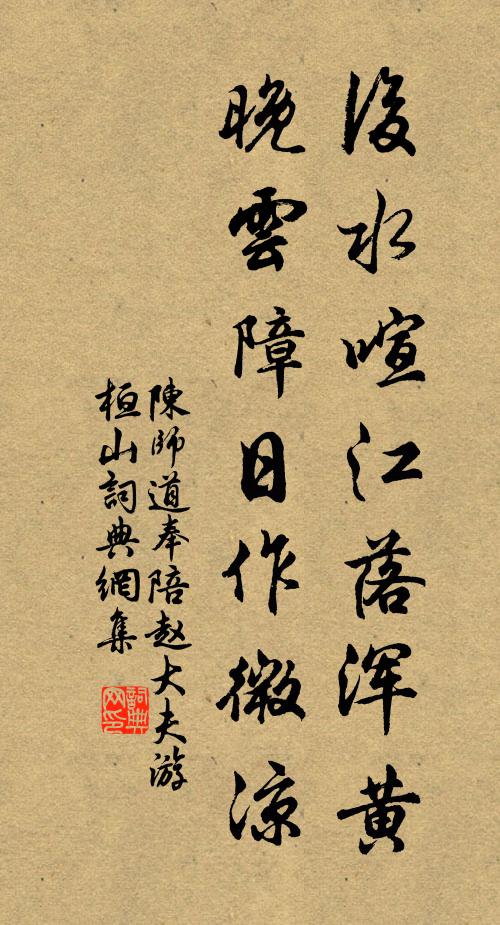 後水喧江落浑黄
晚雲障日作微凉
陳師道奉陪赵大夫游
桓山詞典網集
詞典
网印